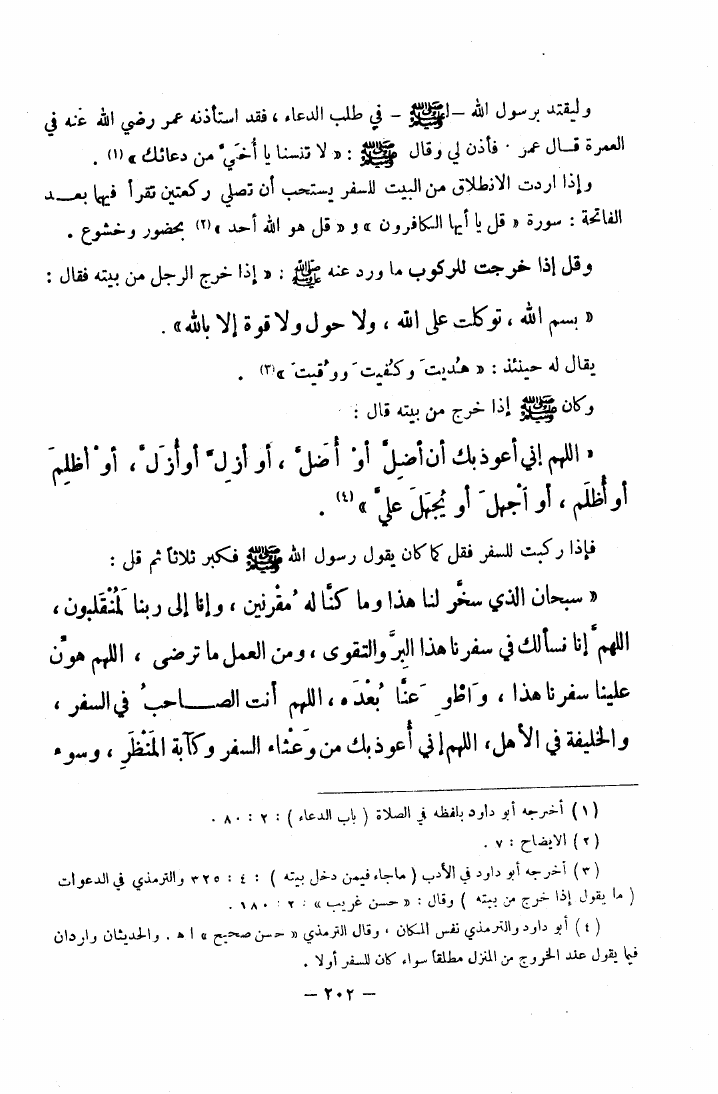 وليقتد برسول الله - ﷺ - في طلب الدعاء ، فقد استأذنه عمر رضي الله عنه في
العمرة قال عمر . فأذن لي وقال ﷺ : « لا تنسنا يا أُخَيَّ من دعائك » (١) .
وإذا اردت الانطلاق من البيت للسفر يستحب أن تصلي ركعتين تقرأ فيها بعد
الفاتحة : سورة « قل يا أيها الكافرون » و « قل هو الله أحد » (٢) بحضور وخشوع .
وقل إذا خرجت للركوب ما ورد عنه ﷺ : « إذا خرج الرجل من بيته فقال :
« بسم الله ، توكلت على الله ، ولا حول ولا قوة إلا بالله » .
يقال له حينئذ : « هُديتَ وكُفيتَ ووُقيتَ » (٣) .
وكان ﷺ إذا خرج من بيته قال :
« اللهم إني أعوذ بك أن أضِلَّ أوْ أُضَلَّ ، أو أزِلَّ أو أُزَلَّ ، أوْ أظلِمَ
أو أُظلَم ، أو أَجْهلَ أو يُجهَلَ عليَّ » (٤) .
فإذا ركبت للسفر فقل كما كان يقول رسول الله ﷺ فكبر ثلاثاً ثم قل :
« سبحان الذي سخَّر لنا هذا وما كنَّا له مُقرْنين ، وإنا إلى ربنا لَمُنْقَلبون ،
اللهمَّ إنا نسألك في سفرنا هذا البِرَّ والتقوى ، ومن العمل ما ترضى ، اللهم هوِّن
علينا سفرنا هذا ، وَاطْوِ عَنَّا بُعْدَه ، اللهم أنت الصاحبُ في السفر ،
والخليفة في الأهل، اللهم إني أعوذ بك من وَعْثاء السفر وكآبة المَنْظَرِ ، وسوء
(١) أخرجه أبو داود بلفظه في الصلاة ( باب الدعاء ) : ٢ : ٨٠ .
(٢) الايضاح : ٧ .
(٣) أخرجه أبو داود في الأدب ( ماجاء فيمن دخل بيته ) : ٤ : ٣٢٥ والترمذي في الدعوات
( ما يقول إذا خرج من بيته ) وقال : « حسن غريب » : ٢ : ١٨٠ .
(٤) أبو داود والترمذي نفس المكان ، وقال الترمذي « حسن صحيح » ا ه . والحديثان واردان
فيما يقول عند الخروج من المنزل مطلقاً سواء كان للسفر أولا .
– ٢٠٢ –